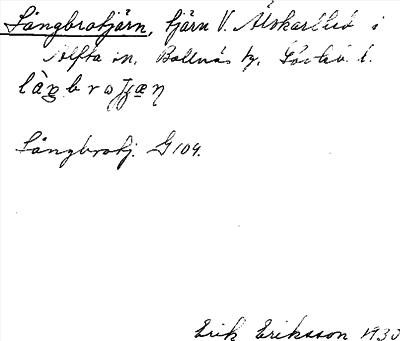 Långbrotjärn, tjärn V. Älskarbled i
Alfta sn, Bollnäs tg. Gävleb. l.
Långbrotj. G109.
Erik Eriksson 1930